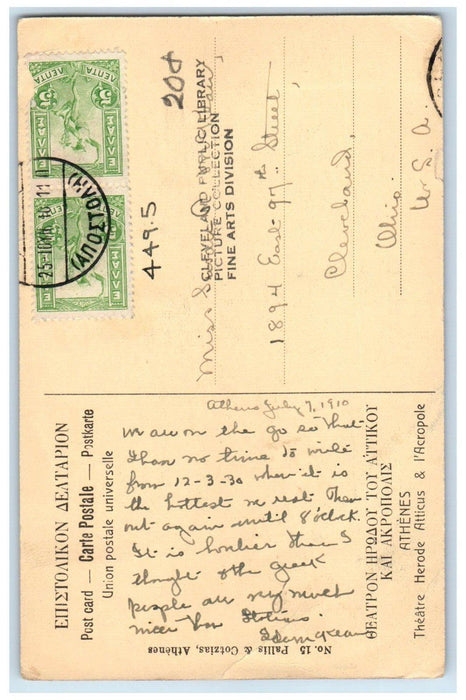 ΕΠΙΣΤΟΛΙΚΟΝ ΔΕΛΤΑΡΙΟΝ
Post card — Carte Postale — Postkarte
Union postale universelle
Athens July 7, 1910
We are on the go so that
I have no time to write
from 12-3-30 when it is
the hottest we rest then
out again until 8 o'clock.
It is lovelier than I
thought & the greek
people are very much
nicer than Italians.
ΘΕΑΤΡΟΝ ΗΡΩΔΟΥ ΤΟΥ ΑΤΤΙΚΟΥ
ΚΑΙ ΑΚΡΟΠΟΛΙΣ
ATHÈNES
Théâtre Herode Atticus & l'Acropole
No. 15 Pallis & Cotzias, Athènes
ΛΕΠΤΑ
5
5
ΕΛΛΑΣ
ΕΛΛΑΣ
5
5
(ΑΠΟΣΤΟΛΗ)
204
449.5
CLEVELAND PUBLIC LIBRARY
PICTURE COLLECTION
FINE ARTS DIVISION
Miss
1894 East 97th Street
Cleveland,
Ohio
U.S.A.